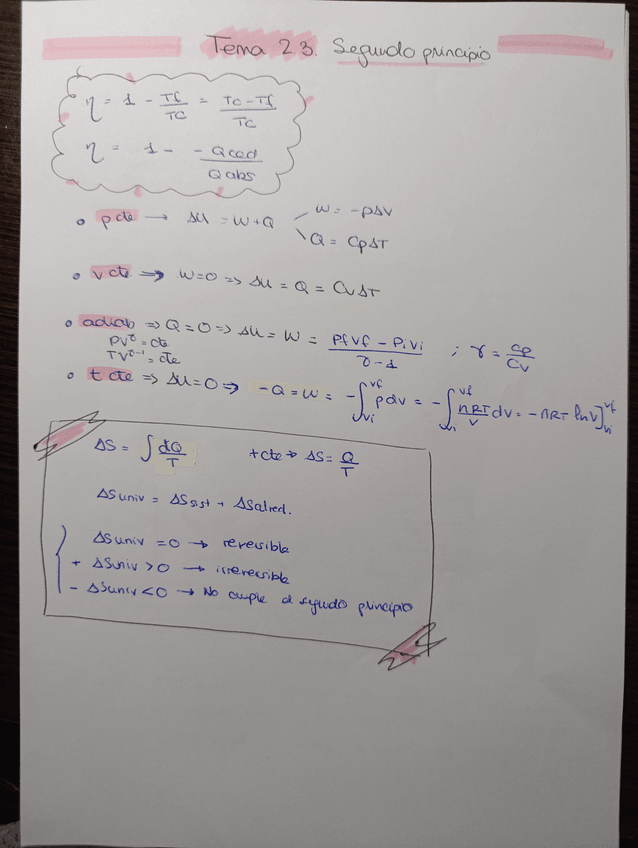 Tema 2.3. Segundo principio
η = 1 - Tf/Tc = Tc-Tf/Tc
η = 1 - -Qced/Qabs
• p cte → ΔU = W+Q
W = -pΔV
Q = CpΔT
• v cte => W=0 => ΔU = Q = CvΔT
• adiab => Q=0 => ΔU = W = PfVf - PiVi / γ-1 ; γ = Cp/Cv
PV^γ = cte
TV^γ-1 = cte
• t cte => ΔU=0 => -Q = W = -∫Vi^Vf pdv = -∫Vi^Vf nRT/V dv = -nRT lnV]Vi^Vf
ΔS = ∫ dQ/T t cte → ΔS = Q/T
ΔSuniv = ΔSsist + ΔSalred.
ΔSuniv = 0 → reversible
+ ΔSuniv > 0 → irreversible
- ΔSuniv < 0 → No cumple el segundo principio